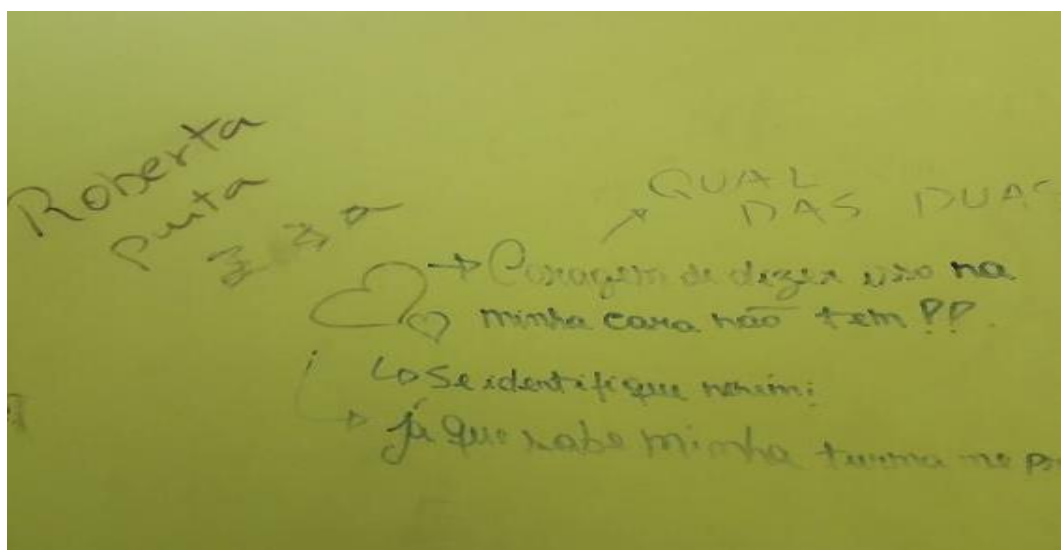 Roberta
puta
3º a
QUAL
DAS DUAS
Coragem de dizer isso na
minha cara não tem??
Se identifique
já que sabe minha turma me